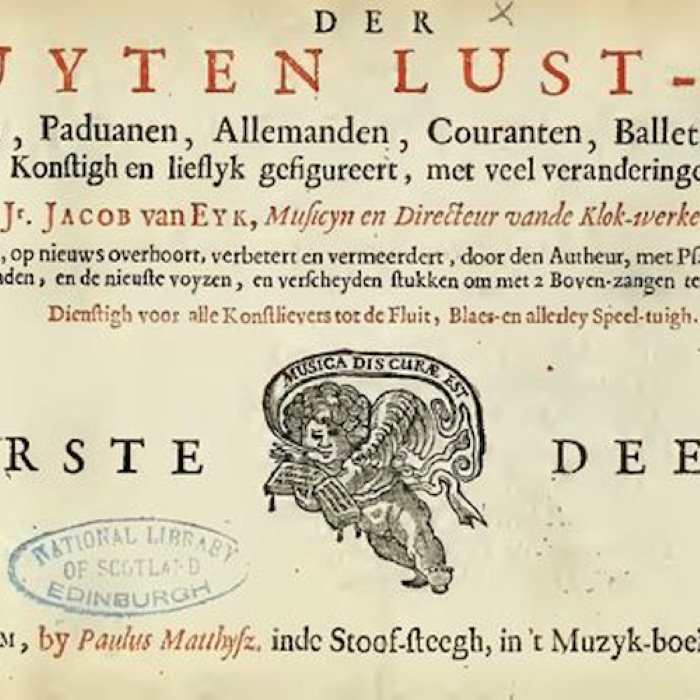 DER
UYTEN LUST-
, Paduanen, Allemanden, Couranten, Ballet
Konſtigh en lieflyk gefigureert, met veel veranderinge
Jr. JACOB van EYK, Muſicyn en Directeur vande Klok-werke
, op nieuws overhoort, verbetert en vermeerdert, door den Autheur, met Pſ
nden, en de nieuſte voyzen, en verſcheyden ſtukken om met 2 Boven-zangen te
Dienſtigh voor alle Konſtlievers tot de Fluit, Blaes-en allerley Speel-tuigh.
MUSICA DIS CURÆ EST
RSTE DEE
NATIONAL LIBRARY
OF SCOTLAND
EDINBURGH
M, by Paulus Matthyſz. inde Stoof-ſteegh, in 't Muzyk-boe